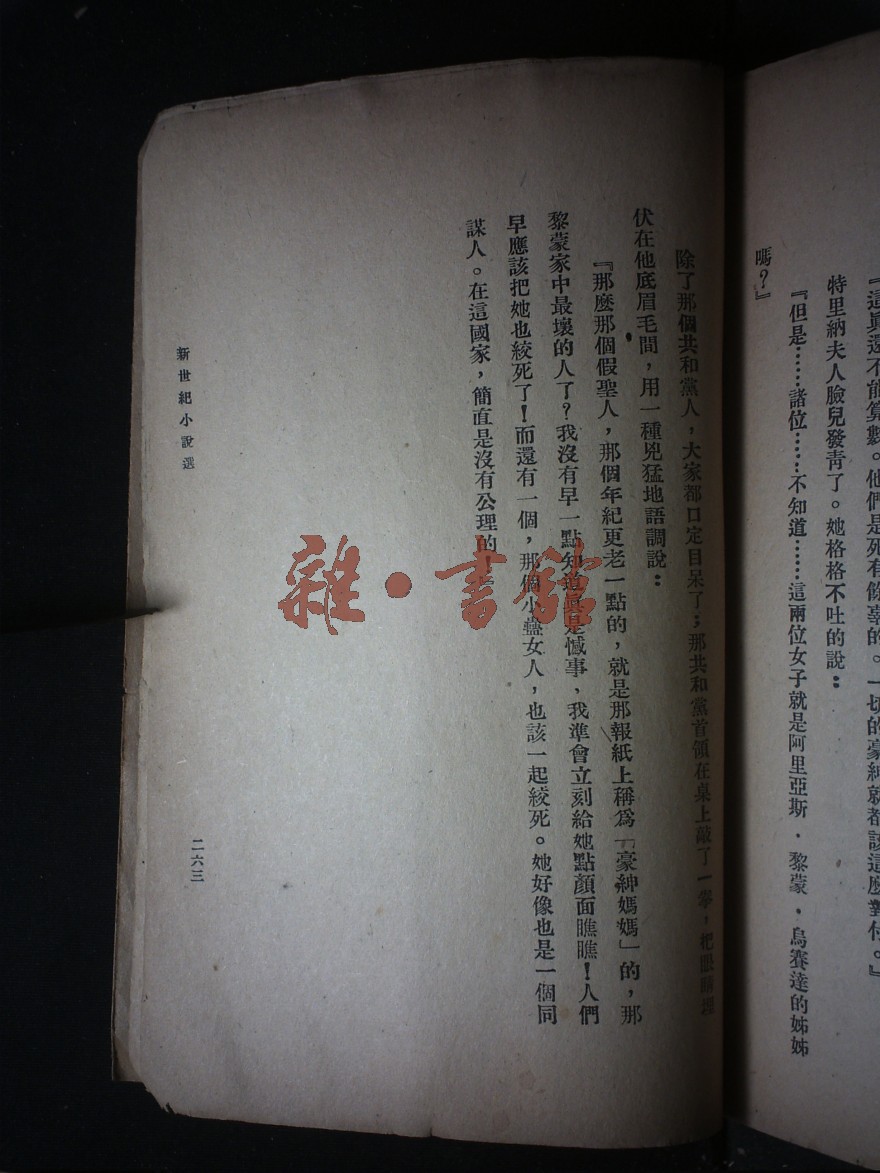 『這眞還不能算數。他們是死有餘辜的。一切的豪紳就都該這麼對付。』
特里納夫人臉兒發靑了。她格格不吐的說：
『但是……諸位……不知道……這兩位女子就是阿里亞斯．黎蒙．烏賽達的姊姊
嗎？』
除了那個共和黨人，大家都口定目呆了；那共和黨首領在桌上敲了一拳，把眼睛埋
伏在他底眉毛間，用一種兇猛地語調說：
『那麼那個假聖人，那個年紀更老一點的，就是那報紙上稱爲「豪紳媽媽」的，那
黎蒙家中最壞的人了？我沒有早一點知道眞是憾事，我準會立刻給她點顏面瞧瞧！人們
早應該把她也絞死了！而還有一個，那個小蠱女人，也該一起絞死。她好像也是一個同
謀人。在這國家，簡直是沒有公理的！』
新世紀小說選
二六三
雜·書館